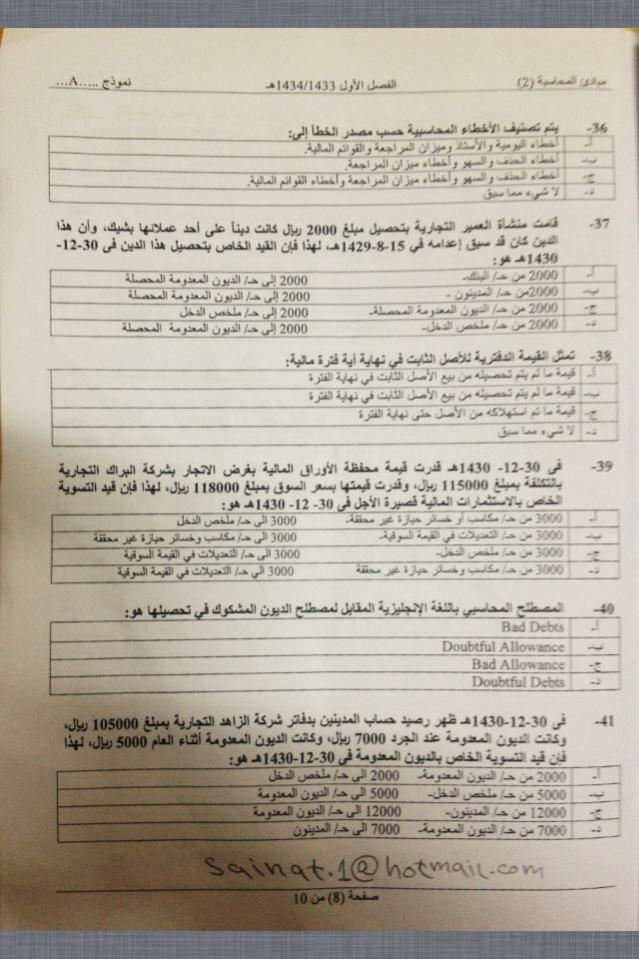 مبادئ المحاسبة (2) الفصل الأول 1434/1433هـ نموذج .....A...
36- يتم تصنيف الأخطاء المحاسبية حسب مصدر الخطأ إلى:
أ- أخطاء اليومية والأستاذ وميزان المراجعة والقوائم المالية.
ب- أخطاء الحذف والسهو وأخطاء ميزان المراجعة.
ج- أخطاء الحذف والسهو وأخطاء ميزان المراجعة وأخطاء القوائم المالية.
د- لا شيء مما سبق
37- قامت منشأة العمير التجارية بتحصيل مبلغ 2000 ريال كانت ديناً على أحد عملائها بشيك، وأن هذا
الدين كان قد سبق إعدامه في 15-8-1429هـ، لهذا فإن القيد الخاص بتحصيل هذا الدين فى 30-12-
1430هـ هو:
أ- 2000 من حـ/ البنك- 2000 إلى حـ/ الديون المعدومة المحصلة
ب- 2000من حـ/ المدينون - 2000 إلى حـ/ الديون المعدومة المحصلة
ج- 2000 من حـ/ الديون المعدومة المحصلة- 2000 إلى حـ/ ملخص الدخل
د- 2000 من حـ/ ملخص الدخل- 2000 إلى حـ/ الديون المعدومة المحصلة
38- تمثل القيمة الدفترية للأصل الثابت في نهاية أية فترة مالية:
أ- قيمة ما لم يتم تحصيله من بيع الأصل الثابت في نهاية الفترة
ب- قيمة ما لم يتم تحصيله من بيع الأصل الثابت في نهاية الفترة
ج- قيمة ما تم استهلاكه من الأصل حتى نهاية الفترة
د- لا شيء مما سبق
39- فى 30-12- 1430هـ قدرت قيمة محفظة الأوراق المالية بغرض الاتجار بشركة البراك التجارية
بالتكلفة بمبلغ 115000 ريال، وقدرت قيمتها بسعر السوق بمبلغ 118000 ريال، لهذا فإن قيد التسوية
الخاص بالاستثمارات المالية قصيرة الأجل فى 30- 12- 1430هـ هو:
أ- 3000 من حـ/ مكاسب أو خسائر حيازة غير محققة- 3000 الى حـ/ ملخص الدخل
ب- 3000 من حـ/ التعديلات في القيمة السوقية- 3000 الى حـ/ مكاسب وخسائر حيازة غير محققة
ج- 3000 من حـ/ ملخص الدخل- 3000 الى حـ/ التعديلات في القيمة السوقية
د- 3000 من حـ/ مكاسب وخسائر حيازة غير محققة 3000 الي حـ/ التعديلات في القيمة السوقية
40- المصطلح المحاسبي باللغة الإنجليزية المقابل لمصطلح الديون المشكوك في تحصيلها هو:
أ- Bad Debts
ب- Doubtful Allowance
ج- Bad Allowance
د- Doubtful Debts
41- فى 30-12-1430هـ ظهر رصيد حساب المدينين بدفاتر شركة الزاهد التجارية بمبلغ 105000 ريال،
وكانت الديون المعدومة عند الجرد 7000 ريال، وكانت الديون المعدومة أثناء العام 5000 ريال، لهذا
فإن قيد التسوية الخاص بالديون المعدومة فى 30-12-1430هـ هو:
أ- 2000 من حـ/ الديون المعدومة- 2000 الى حـ/ ملخص الدخل
ب- 5000 من حـ/ ملخص الدخل- 5000 الى حـ/ الديون المعدومة
ج- 12000 من حـ/ المدينون- 12000 الى حـ/ الديون المعدومة
د- 7000 من حـ/ الديون المعدومة- 7000 الى حـ/ المدينون
Sainat.1@hotmail.com
صفحة (8) من 10